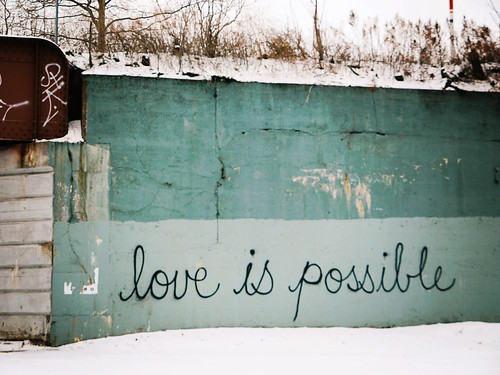 love is possible